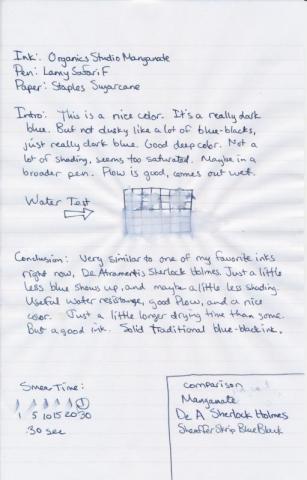 Ink: Organics Studio Manganate
Pen: Lamy Safari F
Paper: Staples Sugarcane
Intro: This is a nice color. It's a really dark
blue. But not dusky like a lot of blue-blacks,
just really dark blue. Good deep color. Not a
lot of shading, seems too saturated. Maybe in a
broader pen. Flow is good, comes out wet.
Water Test
Conclusion: Very similar to one of my favorite inks
right now, De Atramentis Sherlock Holmes. Just a little
less blue shows up, and maybe a little less shading.
Useful water resistance, good flow, and a nice
color. Just a little longer drying time than some.
But a good ink. Solid traditional blue-black ink.
Smear Time:
1 5 10 15 20 30
30 sec
Comparison
Manganate
De A Sherlock Holmes
Sheaffer Skrip Blue Black